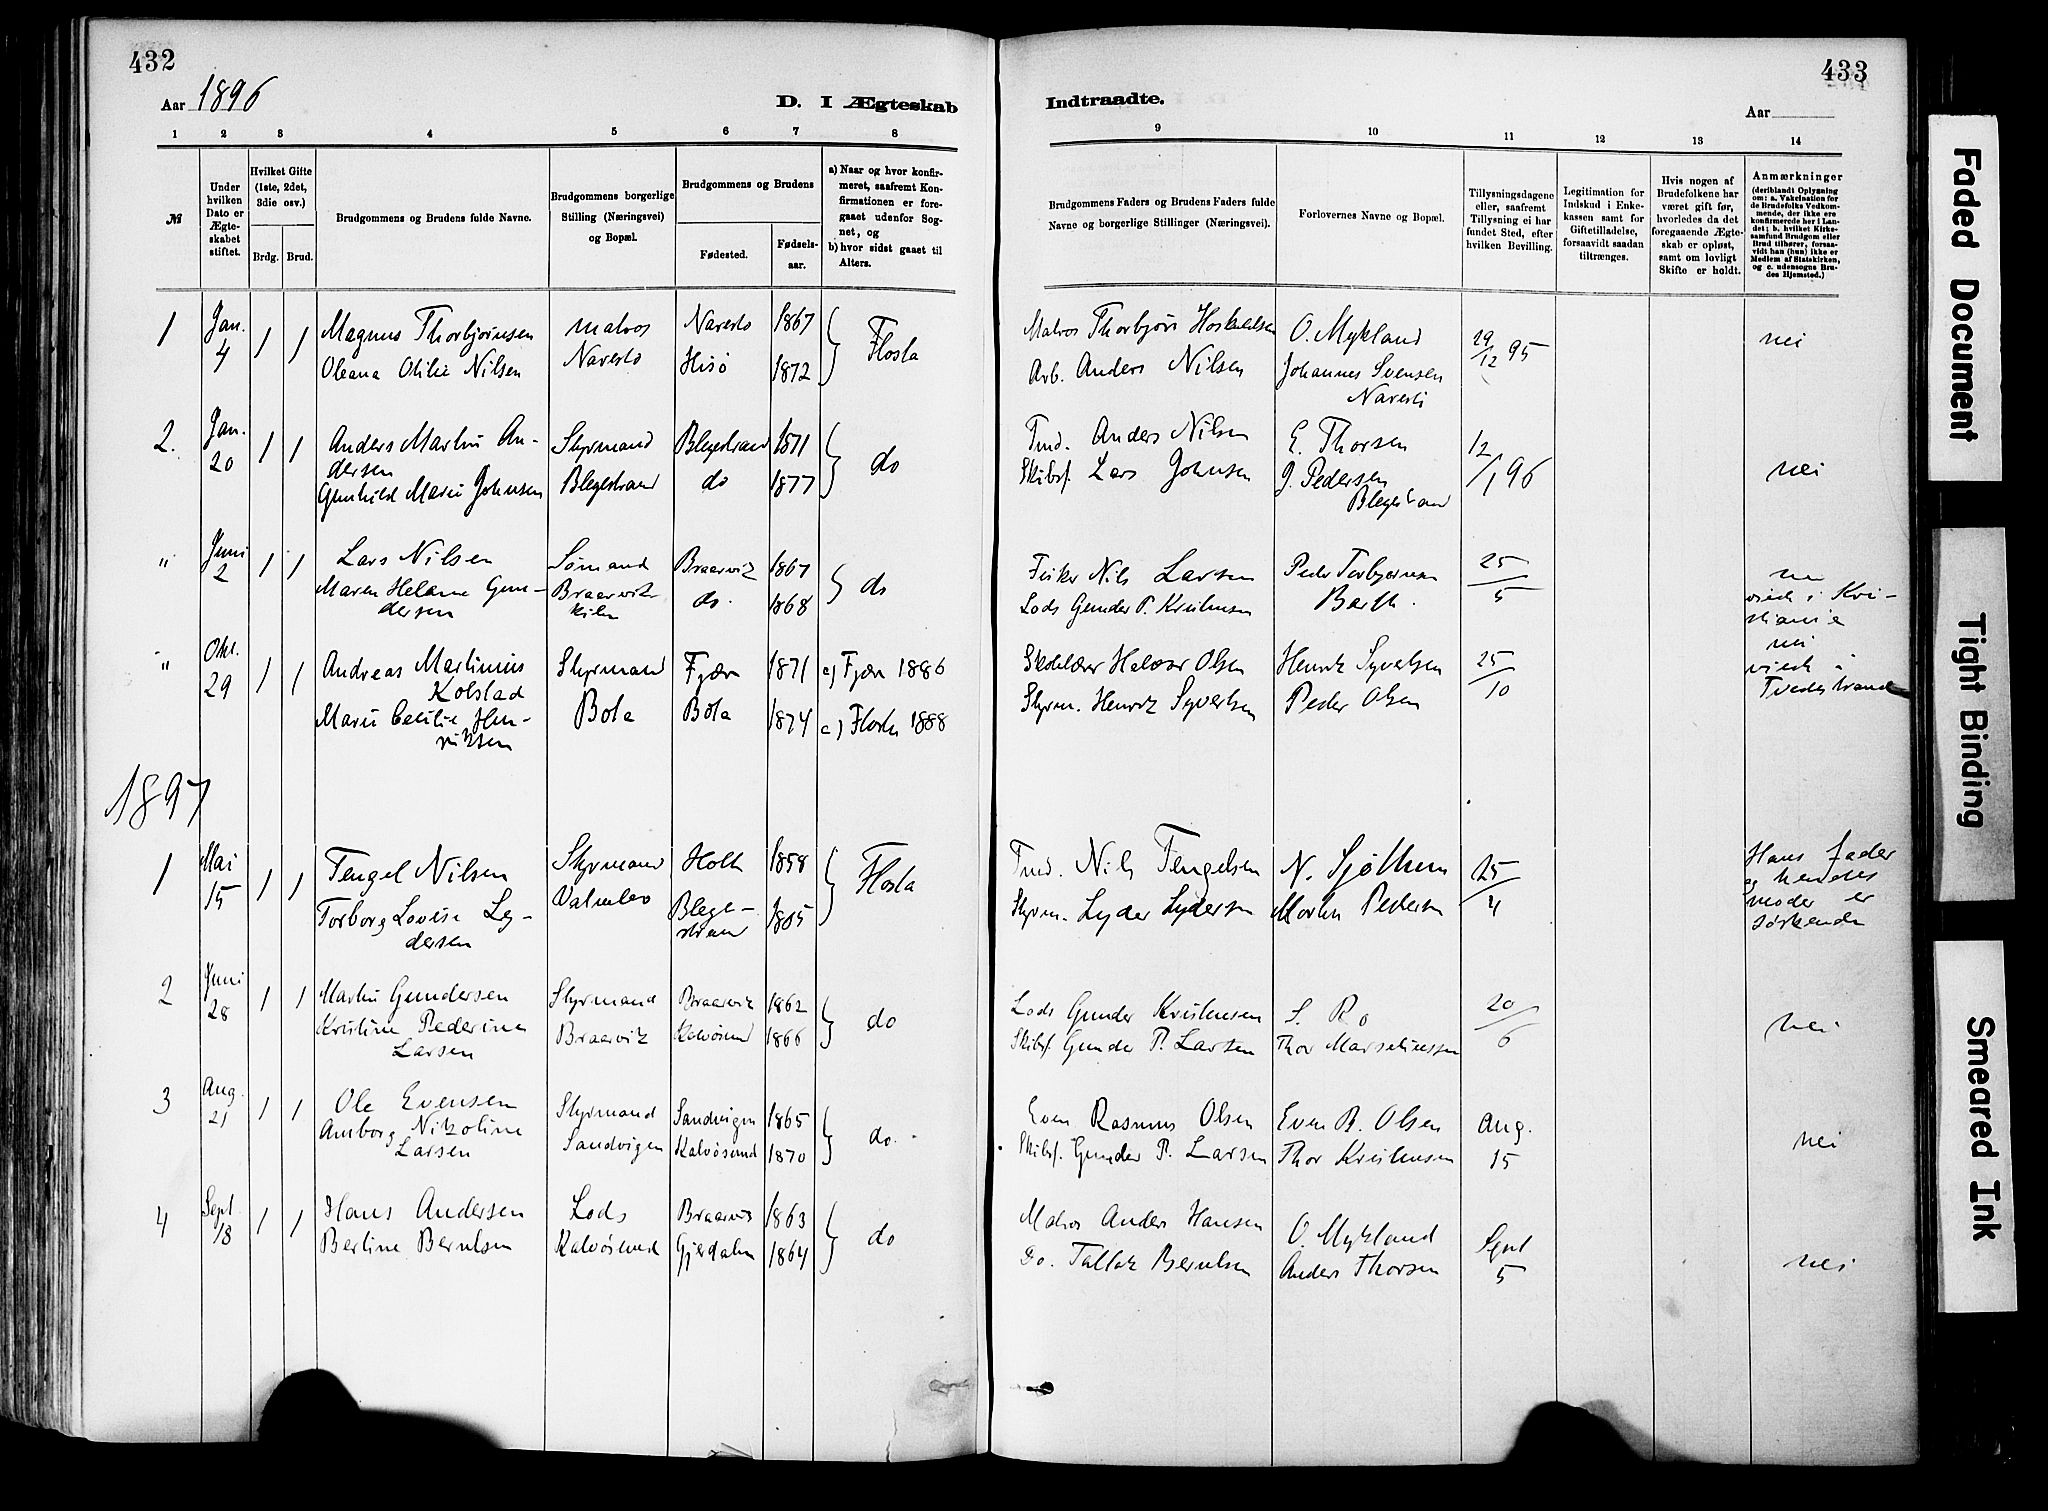 432
433
Aar 1896
D. I Ægteskab
Indtraadte.
Aar
1 2 3 4 5 6 7 8
9 10 11 12 13 14
№
Under hvilken Dato er Ægteskabet stiftet.
Hvilket Gifte (1ste, 2det, 3die osv.)
Brdg. Brud.
Brudgommens og Brudens fulde Navne.
Brudgommens borgerlige Stilling (Næringsvei) og Bopæl.
Brudgommens og Brudens
Fødested.
Fødselsaar.
a) Naar og hvor konfirmeret, saafremt Konfirmationen er foregaaet udenfor Sognet, og
b) hvor sidst gaaet til Alters.
Brudgommens Faders og Brudens Faders fulde Navne og borgerlige Stillinger (Næringsvei).
Forlovernes Navne og Bopæl.
Tillysningsdagene eller, saafremt Tillysning ei har fundet Sted, efter hvilken Bevilling.
Legitimation for Indskud i Enkekassen samt for Giftetilladelse, forsaavidt saadan tiltrænges.
Hvis nogen af Brudefolkene har været gift før, hvorledes da det foregaaende Ægteskab er opløst, samt om lovligt Skifte er holdt.
Anmærkninger
(deriblandt Oplysning om: a. Vakcination for de Brudefolks Vedkommende, der ikke ere konfirmerede her i Landet; b. hvilket Kirkesamfund Brudgom eller Brud tilhører, forsaavidt han (hun) ikke er Medlem af Statskirken, og c. udensogns Brudes Hjemsted.)
1 Jan. 4 1 1 Magnus Thorbjørnsen matros Narestø 1867 Flosta Matros Thorbjørn O. Mykland 29/12 95 nei
Oleana Otilie Nilsen Narestø Hisø 1872 Arb. Anders Nilsen Johannes Svensen
Narestø
2. Jan. 20 1 1 Anders Martin An- Styrmand Blegestrand 1871 do Tmd. Anders Nilsen E. Thorsen 12/1 96 nei
dersen
Gunhild Marie Johnsen Blegestrand do 1877 Skibsf. Lars Johnsen J. Pedersen
Blegestrand
" Juni 2 1 1 Lars Nilsen Sømand Braarvik 1867 do Fisker Nils Larsen Peder Torbjørnsen 25/5
Maren Helene Gun- Braarvik- do. 1868 Lods Gunder P. Kristensen Barth. viede i Kri-
dersen kilen stiania
" Okt. 29 1 1 Andreas Martinius Styrmand Fjære 1871 a) Fjære 1886 Halvor Olsen Henrik Syvertsen 25/10 nei
Kolstad viede i
Marie Cecilie Hen- Bota Bota 1874 a) Flosta 1888 Styrm. Henrik Syvertsen Peder Olsen Tvedestrand
riksen
1897
1 Mai 15 1 1 Tengel Nilsen Styrmand Holt 1858 Flosta Tmd. Nils Tengelsen N. Sjøthun 25/4 Hans fader
og hendes
Torborg Lovise Ly- Blege- 1865 Styrm. Lyder Lydersen Martin Pedersen moder er
dersen strand søskende
2 Juni 28 1 1 Martin Gundersen Styrmand Braarvik 1862 do Lods Gunder Kristensen S. Ro 20/6 nei
Kristine Pederine Braarvik Kalvøsund 1866 Skibsf. Gunder P. Larsen Thor Marseliussen
Larsen
3 Aug. 21 1 1 Ole Evensen Styrmand Sandvigen 1865 do. Even Rasmus Olsen Even R. Olsen Aug. 15 nei
Amborg Nikoline Sandvigen Kalvøsund 1870 Skibsf. Gunder P. Larsen Thor Kristensen
Larsen
4 Sept. 18 1 1 Hans Andersen Lods Braarvik 1863 do Matros Anders Hansen O. Mykland Sept 5 nei
Berline Berntsen Kalvøsund Gjerdalen 1864 Do. Tallak Berntsen Anders Thorsen
Faded Document
Tight Binding
Smeared Ink